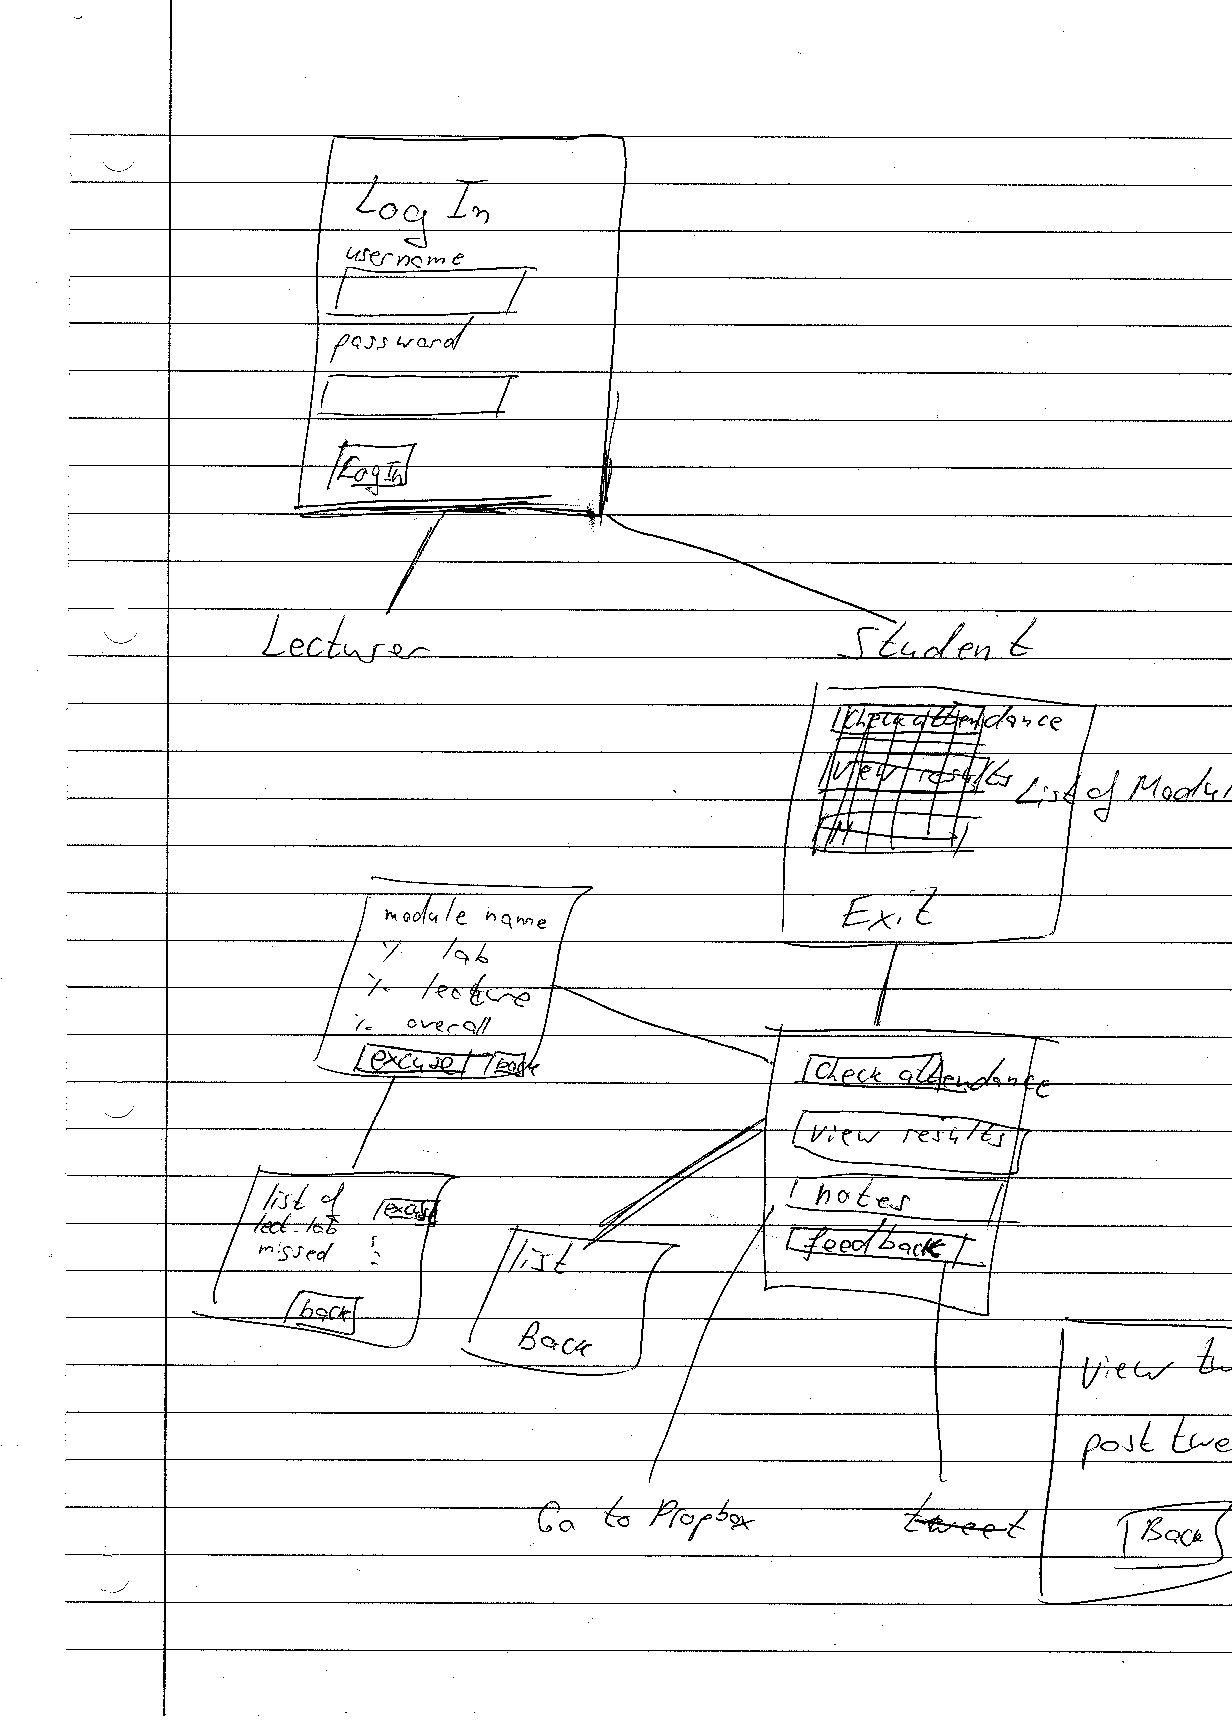 Log In
username
password
Log In
Lecturer
Student
Check attendance
view results
List of Modul
Exit
module name
% lab
% lecture
% overall
excuse back
Check attendance
view results
notes
feedback
list of excuse
lect. lab
missed
back
list
Back
view tw
post twe
Back
Go to Dropbox
tweet